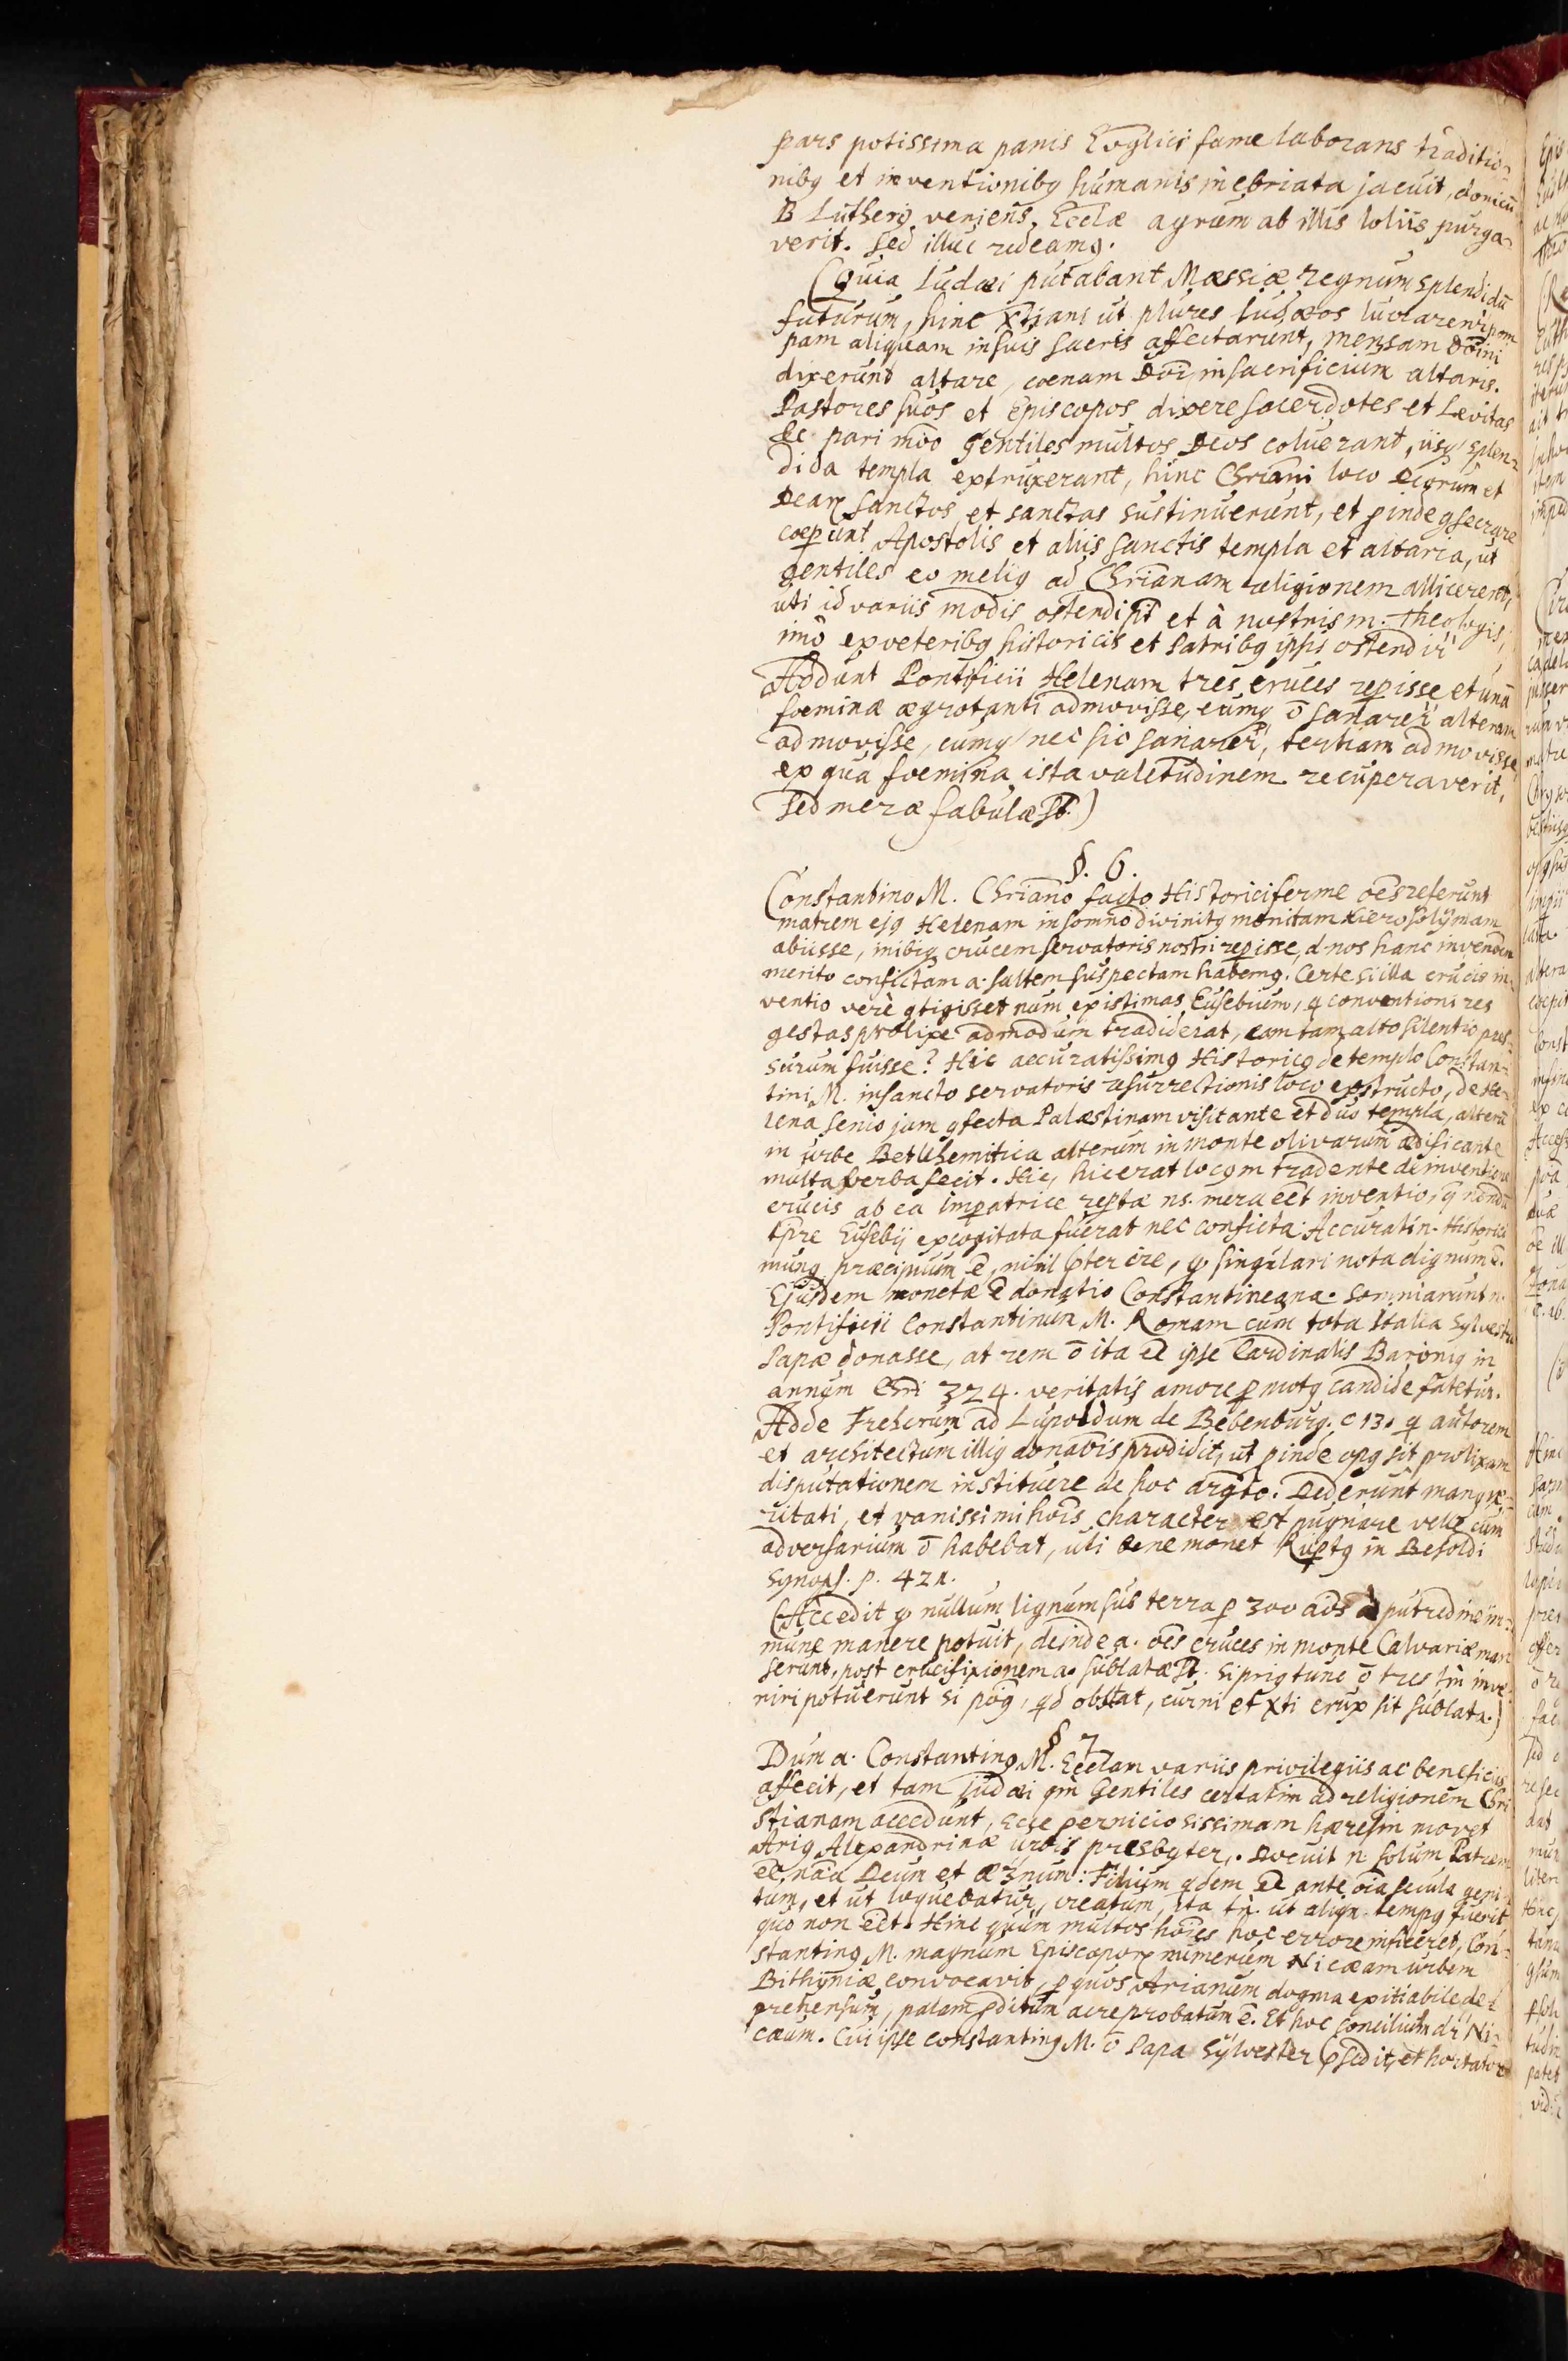 pars potissima panis Evglici fame laborans traditio-
nibꝯ et inventionibꝯ humanis inebriata jacuit, donicū
B Lutherꝯ veniens, Ecclæ agrum ab illis loliis purga-
verit. Sed illuc redeamꝯ.
(Quia Iudæi putabant Mæssiæ regnum splendidū
futurum, hinc Xtiani ut plures Iudæos lucrarentr pom
pam aliquam in suis sacris affectarunt, mensam Dn̄i
dixerunt altare, coenam Dn̄i in sacrificium altaris.
Pastores suos et Episcopos dixere sacerdotes et Lævitas
&c pari mōo gentiles multos Deos coluerant, iisqꝫ splen-
dida templa extruxerant, hinc Chriani loco Deorum et
Dearꝝ Sanctos et sanctas sustinuerunt, et ꝑinde ꝯsecrare
coeperunt Apostolis et aliis Sanctis templa et altaria, ut
gentiles eo meliꝯ ad Chrianam religionem allicerent,
uti id variis modis ostendi pt et à nostris m. Theologis,
imò ex veteribꝯ historicis et Patribꝯ ipsis ostendi
Addunt Pontificii Helenam tres cruces reꝑisse et unā
foeminæ ægrotanti admovisse, cumqꝫ ō sanaretr alteram
admovisse, cumqꝫ nec sic sanaretr, tertiam admovisse,
ex qua foemina ista valetudinem recuperaverit,
Sed meræ fabulæ st.)
§. 6.
Constantino M. Chriano facto Historici ferme oēs referunt
matrem ejꝯ Helenam in somno divinitꝯ monitam Hierosolÿmam
abiisse, inibiqꝫ crucem servatoris nostri reꝑisse, d. nos hanc
merito confictam a. saltem suspectam habemꝯ. Certe si illa crucis in-
ventio verè ꝯtigisset num existimas Eusebium, q̨
gestas prolixe admodum tradiderat, eam tam alto silentio pres-
surum fuisse? Hic accuratissimꝯ Historicꝯ de templo Constan-
tini M. in sancto servatoris resurrectionis loco exstructo, de He-
lena senio jam ꝯfecta Palæstinam visitante et duo templa, alterū
in urbe Betlehemitica alterum in monte olivarum ædificante
multa verba fecit. Hic, hic erat locꝯ tradente de inventione
crucis ab ea imperatrice repertæ ns. mera eet inventio, q̄ nondū
tpre Eusebij excogitata fuerat nec conficta. Accurati n. Historici
munꝯ præcipuum ē, nihil pterire, qꝫ singulari nota dignum ē.
Ejusdem monetæ ē donatio Constantineana. somniarunt n.
Pontificii Constantinum M. Romam cum tota Italia Sylvestro
Papæ donasse, at rem ō ita ee ipse Cardinalis Baroniꝯ in
annum Chri 324. veritatis amore ꝑmotꝯ candide fatetur.
Adde Freherum ad Lupoldum de Bebenburg. C 13. q̨ autorem
et architectum illiꝯ donaōis prodidit, ut ꝑinde opꝯ sit prolixam
disputationem instituere de hoc argto. Dederunt manꝯ ve-
ritati, et vanissimi hōis character est pugnare velle cum
adversarium ō habebat, uti bene monet Ruprtꝯ in Besoldi
Synops. p. 421.
(Accedit qꝫ nullum lignum sub terra ꝑ 300 aōs à putredine im-
mune manere potuit, deinde a. oēs cruces in monte Calvariæ man
serunt, post crucifixionem a. sublatæ st. si priꝯ tunc ō tres tm̄ inve-
niri potuerunt si poꝯ, qd obstat, cur ni et Xti crux sit sublata.)
§ 7
Dum a. Constantinꝯ M. Ecclam variis privilegiis ac beneficiis
affecit, et tam judæi qm̄ Gentiles certatim ad religionem Chri
stianam accedunt, ecce perniciosissimam hæresin movet
Ariꝯ Alexandrinæ urbis presbyter. Docuit n solum Patrem
ee nāa Deum et æternum: Filium qdem ee ante oīa secula geni-
tum, et ut loquebatur, creatum, ita tn̄. ut aliqn. tempꝯ fuerit
quo non eet. Hinc quum multos hōies hoc errore inficeret, Con-
stantinꝯ M. magnum Episcoporꝝ numerum Nicæam urbem
Bithÿniæ convocavit, ꝑ quos Arianum dogma exitiabile de-
prehensum, palam ꝓditum ac reprobatum ē. Et hoc Concilium dr Ni-
cæum. Cui ipse Constantinꝯ M. ō Papa Sÿlvester psedit, et hortatore